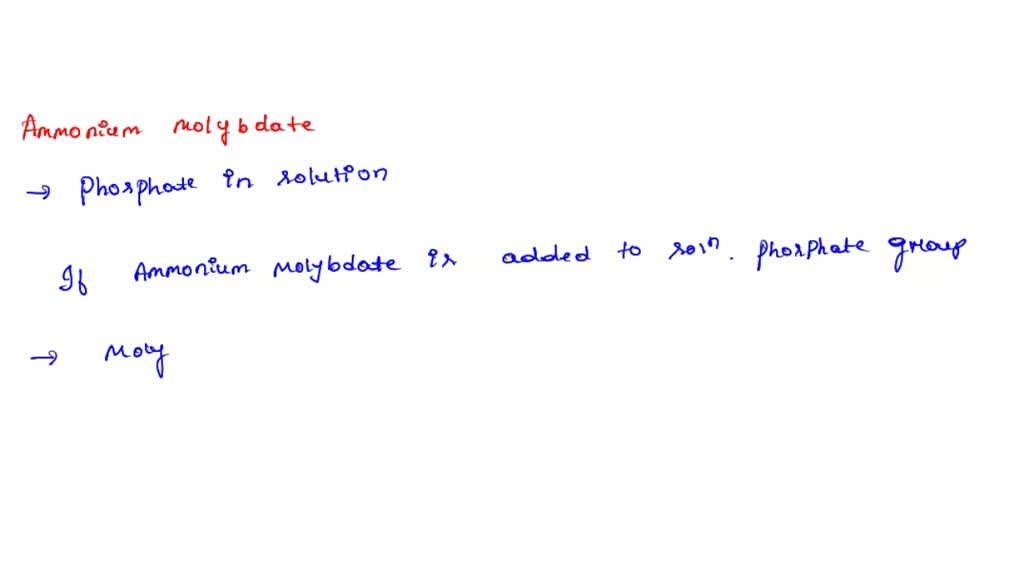 Ammonium Molybdate
→ Phosphate in solution
If Ammonium Molybdate is added to soln. phosphate group
→ Moly